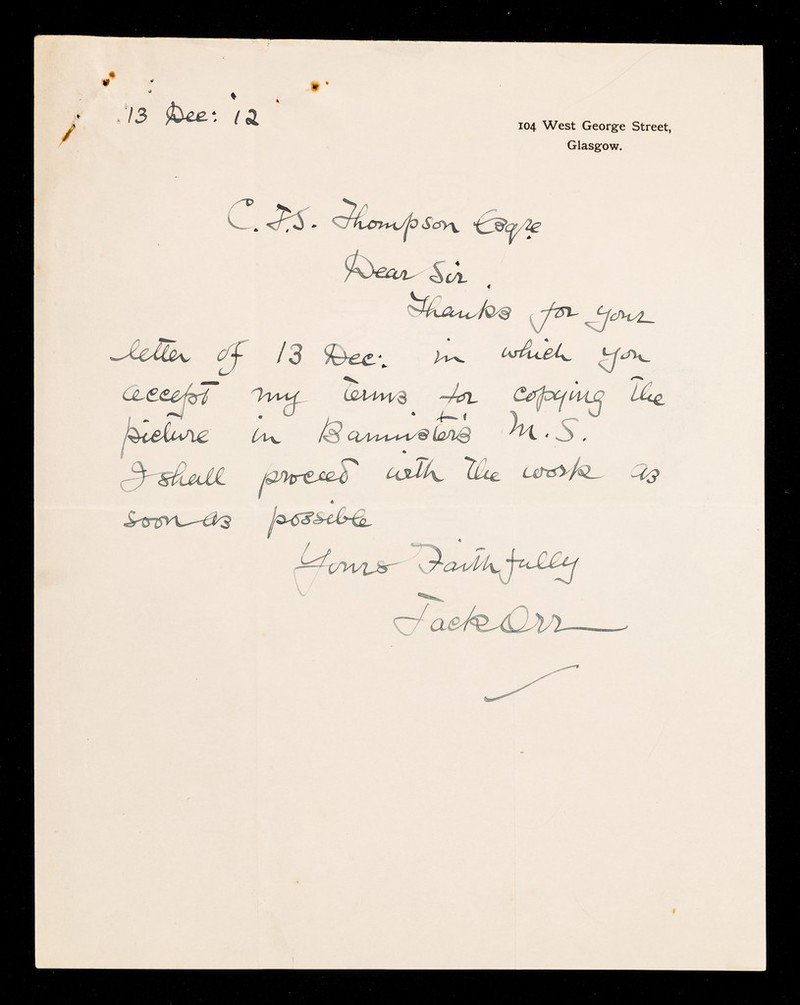 13 Dec: '12
104 West George Street,
Glasgow.
C. J. S. Thompson Esqre
Dear Sir.
Thanks for your
letter of 13 Dec: in which you
accept my terms for copying the
picture in Bannister's M.S.
I shall proceed with the work as
soon as possible
Yours Faithfully
Jack Orr